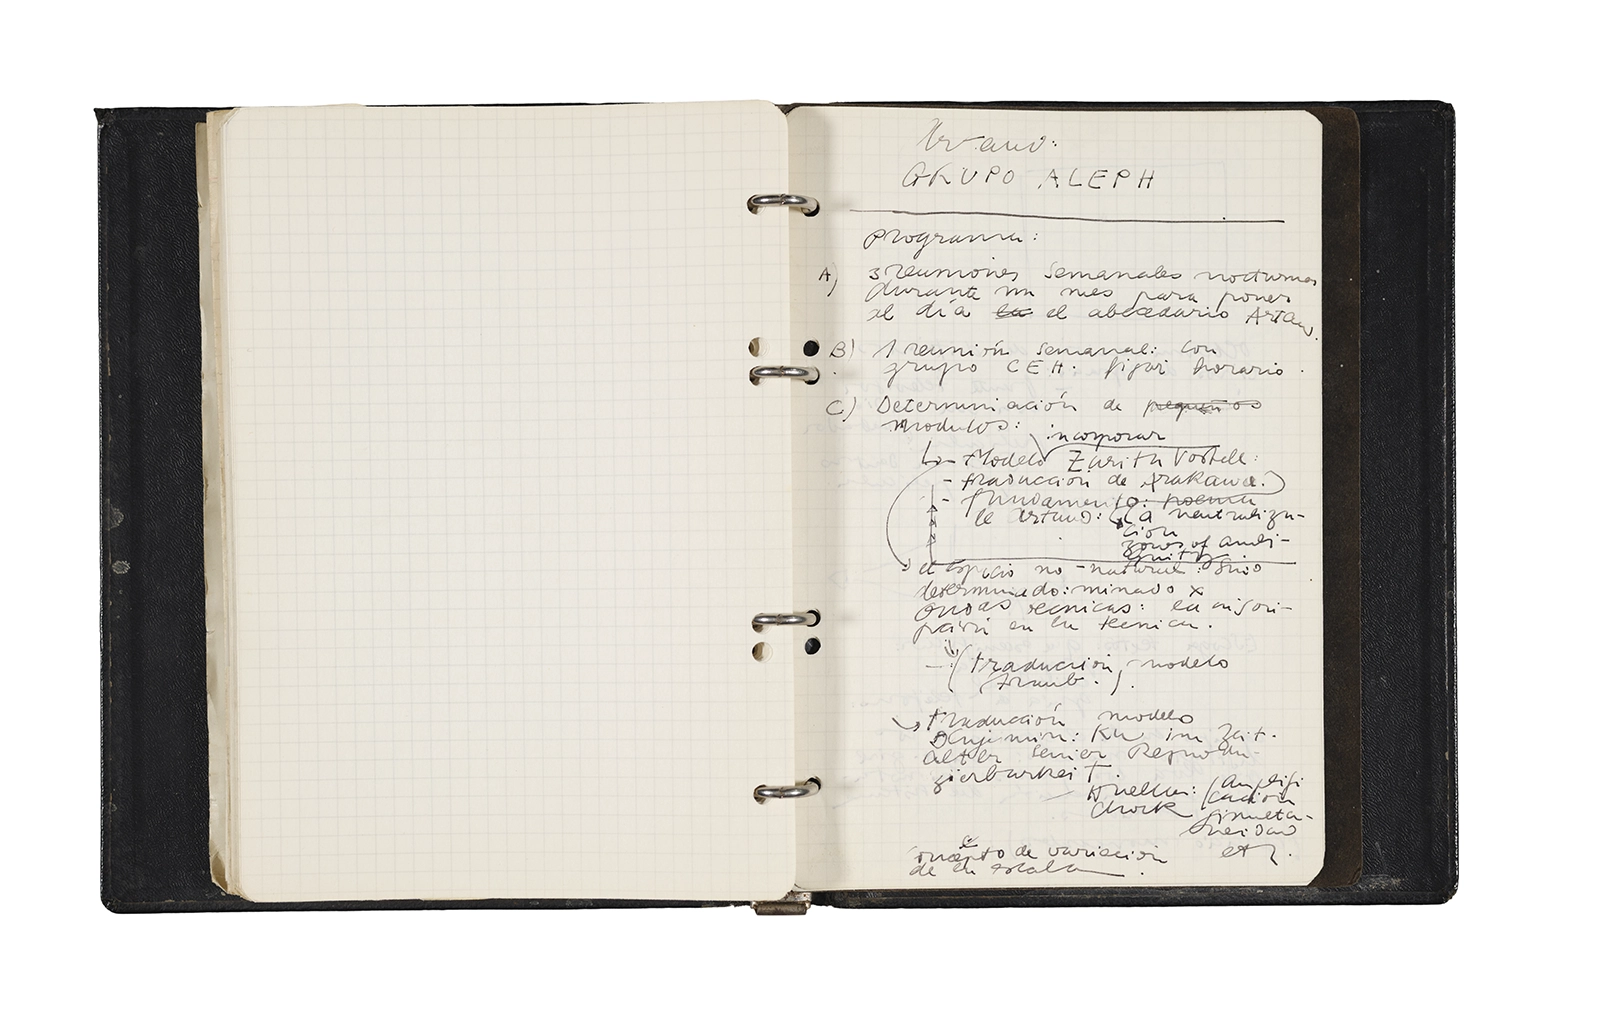 GRUPO ALEPH
Programa:
A) 3 reuniones semanales nocturnas
durante un mes para poner
al día la el abecedario Artau.
B) 1 reunión semanal: con
grupo CEH. fijar horario.
C) Determinación de pequeños
modulos: incorporar
- Modelo Zurita Vostell:
- traducción de Arakawa:)
- fundamento: poema
de Artaud: La neutraliza-
ción
zones of ambi-
guity
el espacio no-natural: sino
determinado: minado x
ondas tecnicas:
en la tecnica.
- (traducción, modelo
traducción modelo
Benjamin: KW im Zeit-
alter seiner Reprodu-
zierbarkeit.
chock
(amplifi
cación
simulta-
neidad
etc.
de variación
de la escala.